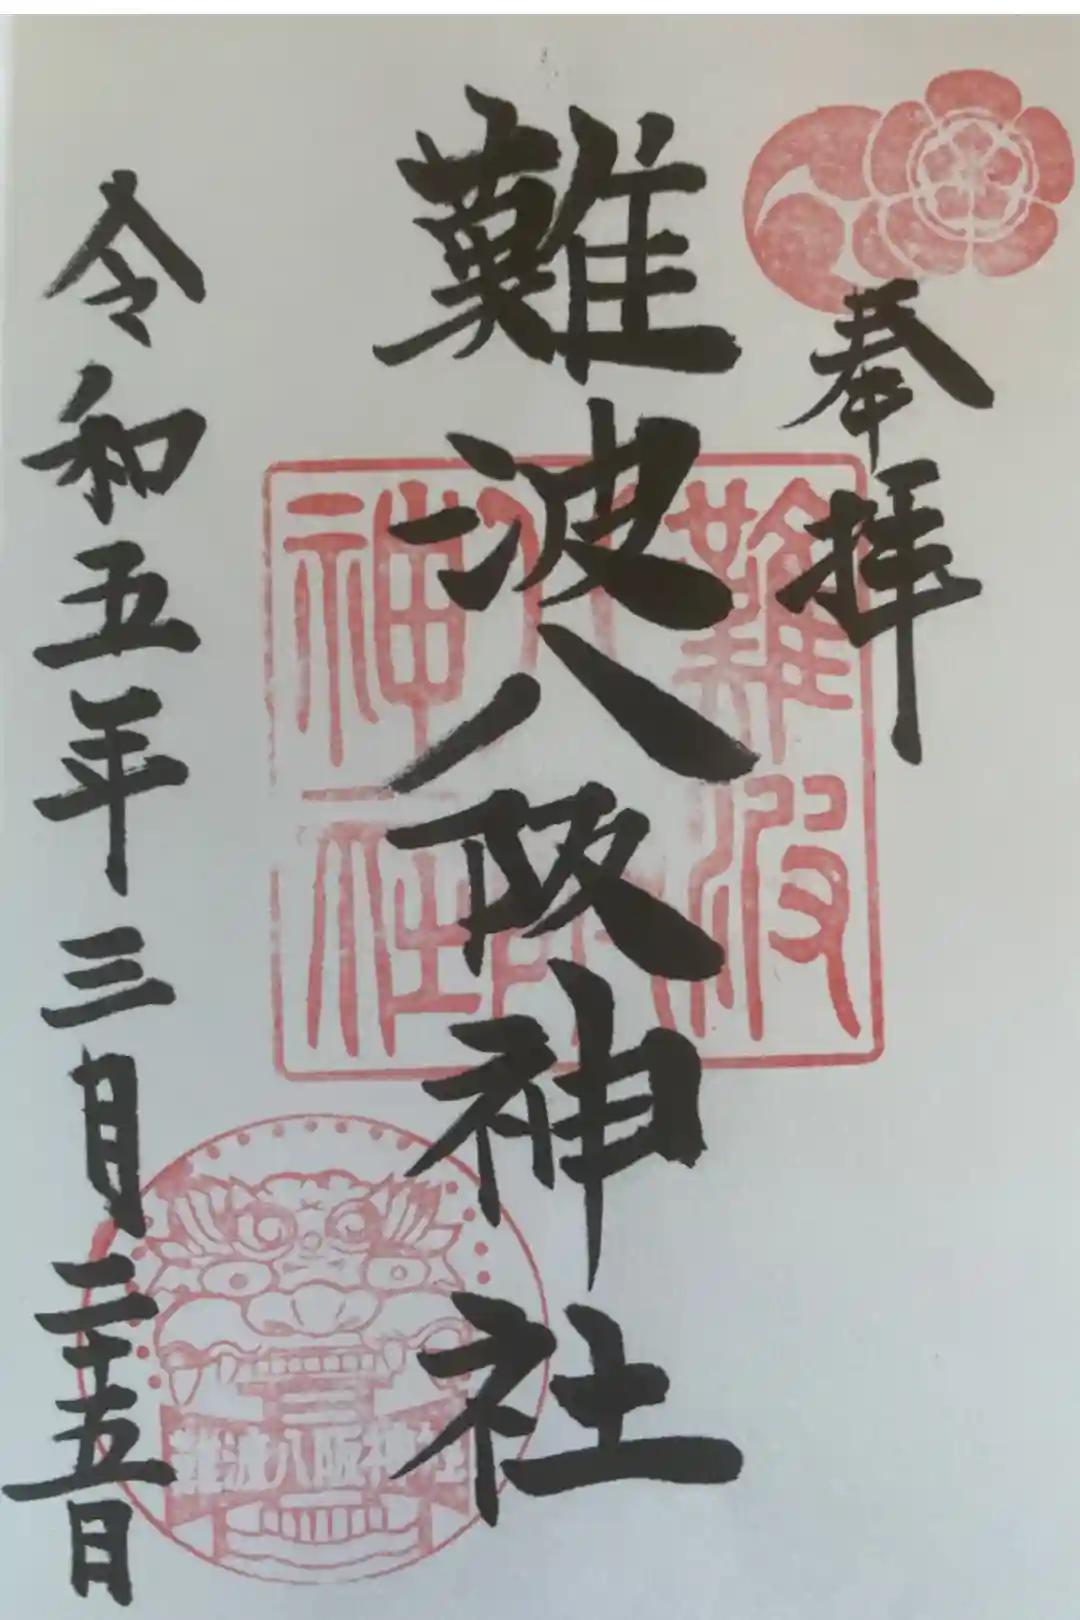 奉拝
難波八阪神社
令和五年三月二十五日
難波
神社
難波八阪神社